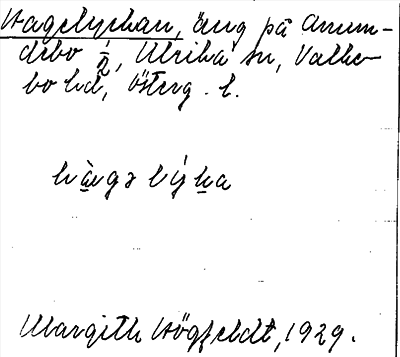 Hagelyckan, äng på Anum-
debo 1/2, Ulrika sn, Valke-
bo hd, Österg. l.
Margith Högfeldt, 1929.